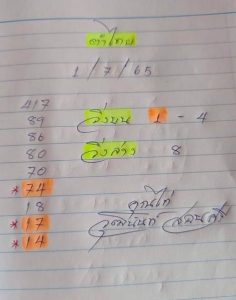 คำไทย
1/7/65
417
89 วิ่งบน 1 - 4
86
80 วิ่งล่าง 8
70
*74
18 คุณไก่
*17
*14